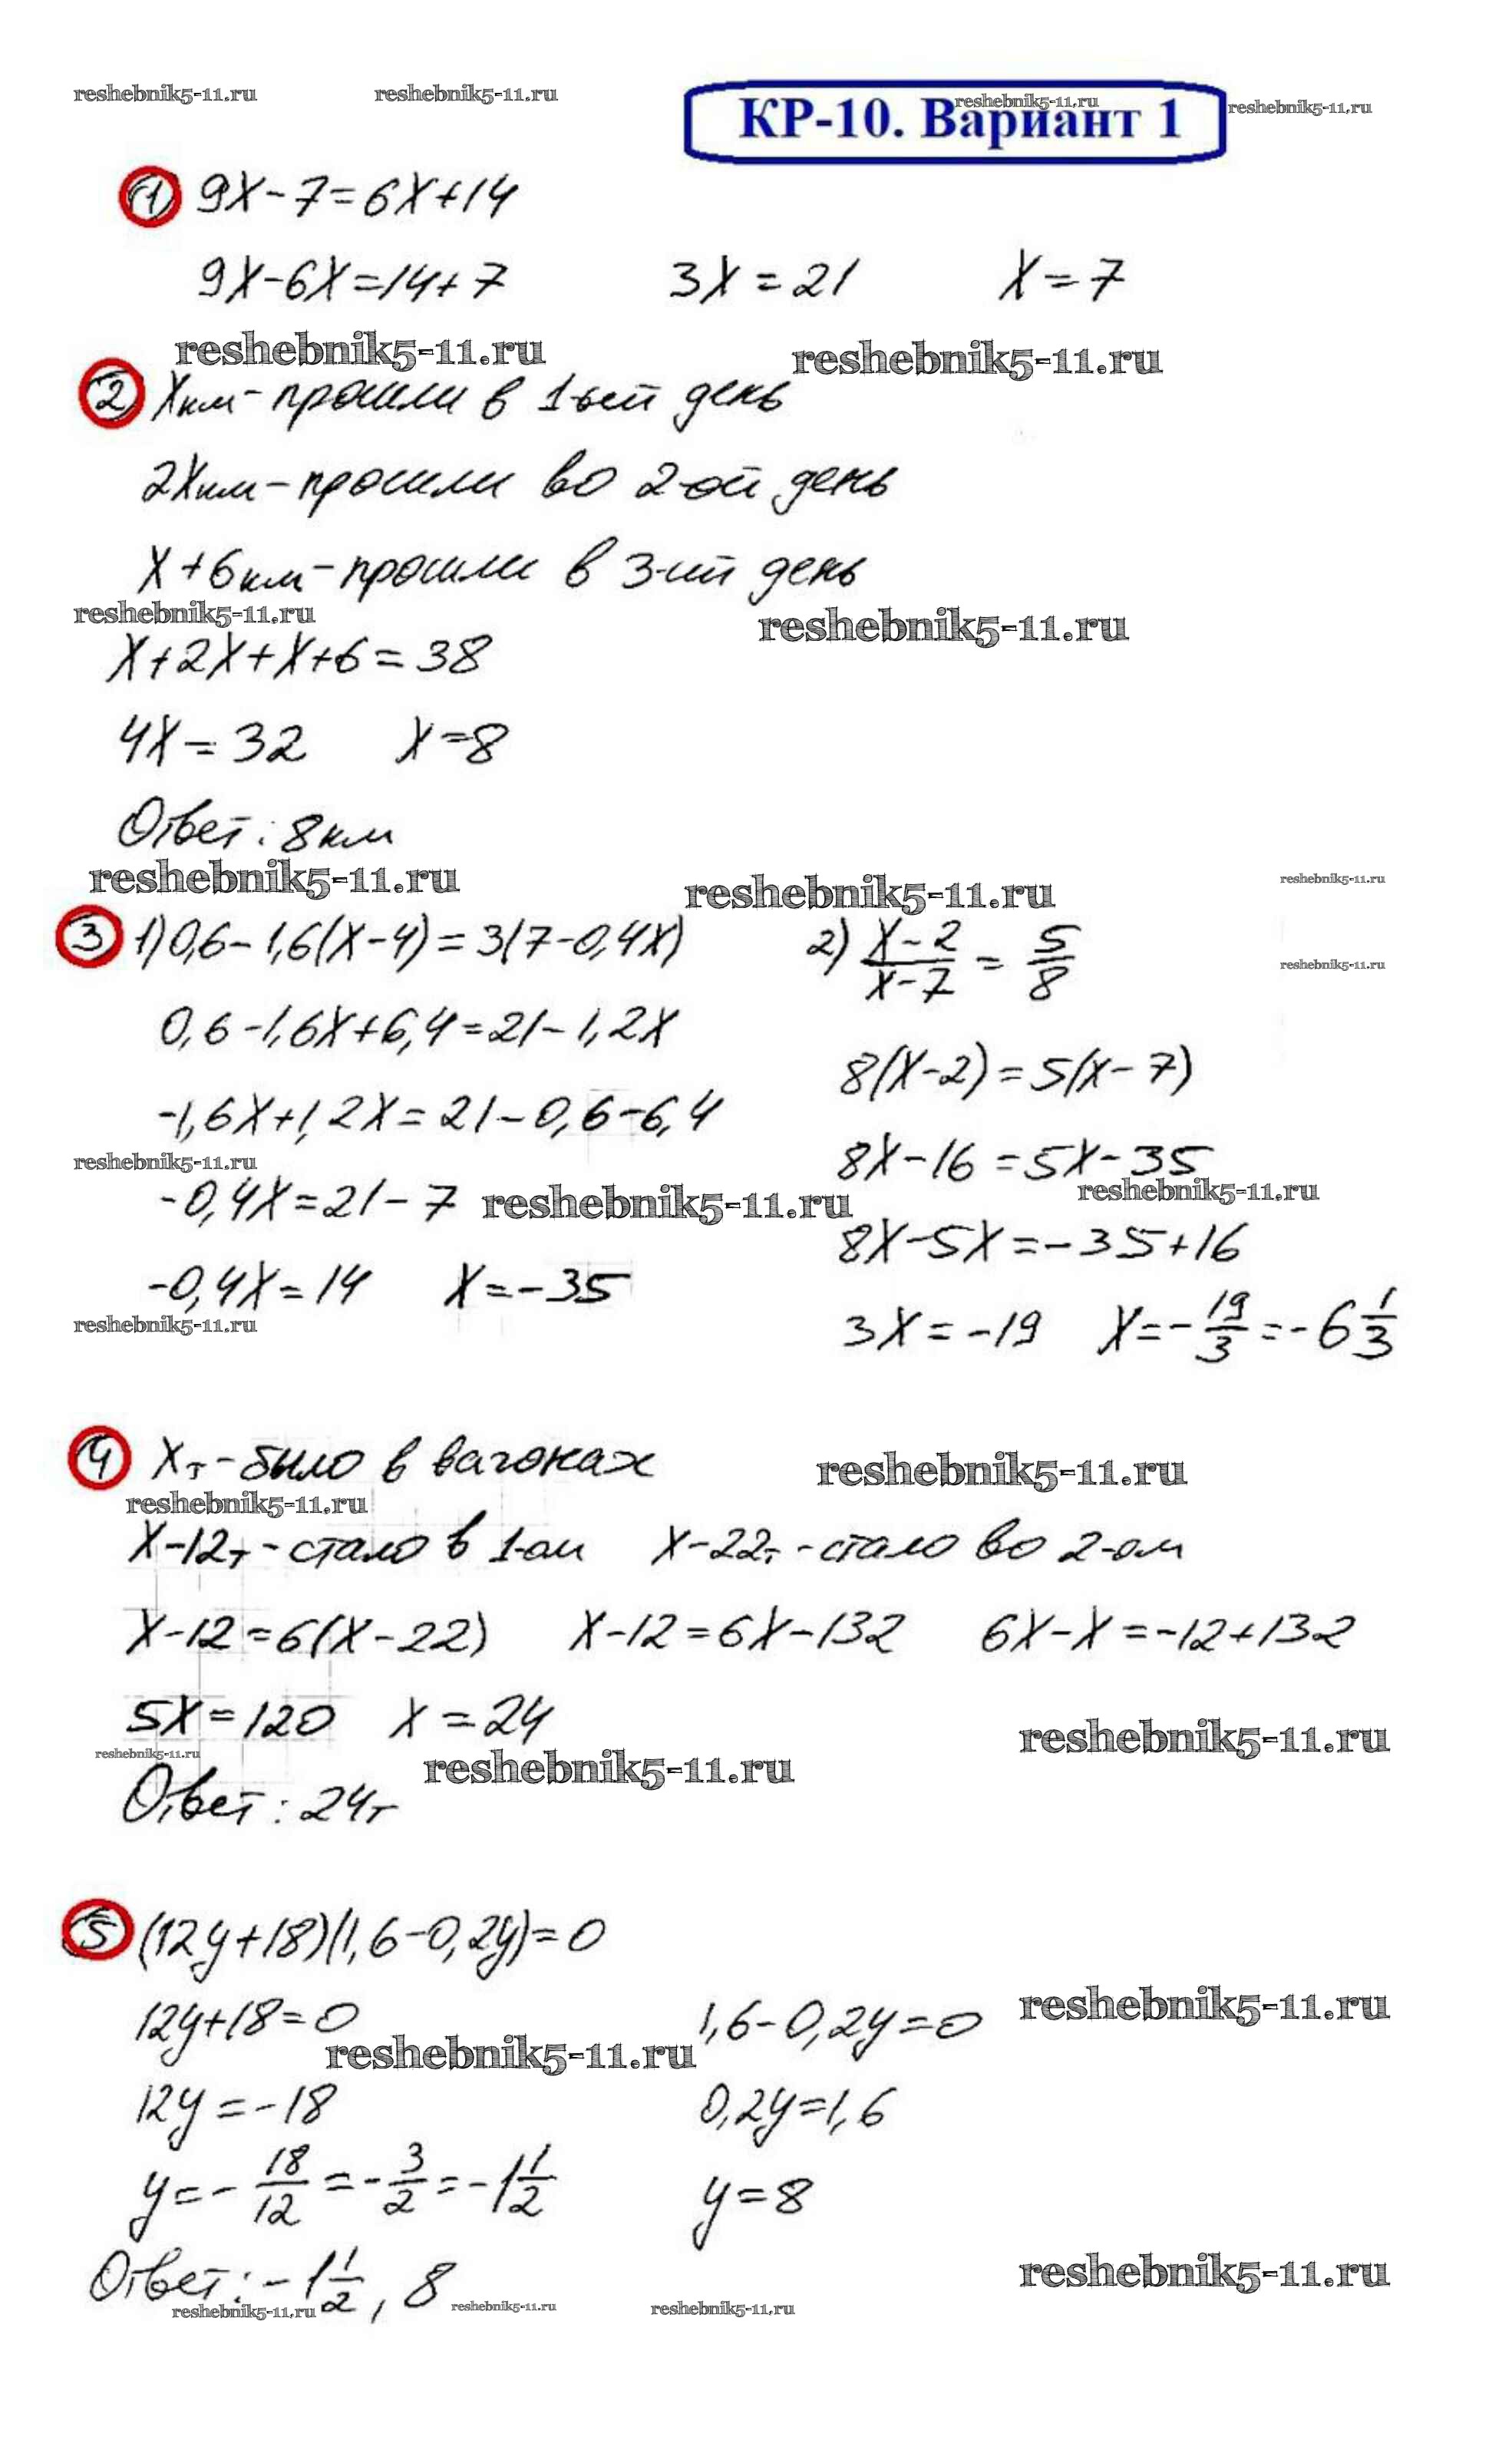 reshebnik5-11.ru reshebnik5-11.ru reshebnik5-11.ru reshebnik5-11.ru
КР-10. Вариант 1
1 9X-7=6X+14
9X-6X=14+7 3X=21 X=7
reshebnik5-11.ru reshebnik5-11.ru
2 Xкм-прошли в 1-ый день
2Xкм-прошли во 2-ой день
X+6км-прошли в 3-ий день
reshebnik5-11.ru reshebnik5-11.ru
X+2X+X+6=38
4X=32 X=8
Ответ: 8км
reshebnik5-11.ru reshebnik5-11.ru reshebnik5-11.ru
3 1) 0,6-1,6(X-4)=3(7-0,4X)
0,6-1,6X+6,4=21-1,2X
-1,6X+1,2X=21-0,6-6,4
reshebnik5-11.ru
-0,4X=21-7 reshebnik5-11.ru
-0,4X=14 X=-35
reshebnik5-11.ru
2) (X-2)/(X-7) = 5/8
reshebnik5-11.ru
8(X-2)=5(X-7)
8X-16=5X-35
reshebnik5-11.ru
8X-5X=-35+16
3X=-19 X=-19/3=-6 1/3
4 Xт-было в вагонах
reshebnik5-11.ru reshebnik5-11.ru
X-12т-стало в 1-ом X-22т-стало во 2-ом
X-12=6(X-22) X-12=6X-132 6X-X=-12+132
5X=120 X=24
reshebnik5-11.ru reshebnik5-11.ru reshebnik5-11.ru
Ответ: 24т
5 (12y+18)(1,6-0,2y)=0
12y+18=0 1,6-0,2y=0 reshebnik5-11.ru
reshebnik5-11.ru
12y=-18 0,2y=1,6
y=-18/12=-3/2=-1 1/2 y=8
Ответ: -1 1/2, 8 reshebnik5-11.ru
reshebnik5-11.ru reshebnik5-11.ru reshebnik5-11.ru